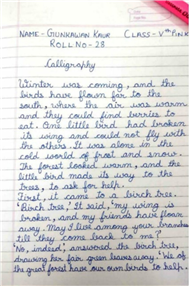 NAME - GUNKALWAN KAUR CLASS - V th PINK
ROLL NO - 28
Calligraphy
Winter was coming, and the
birds have flown far to the
south, where the air was warm
and they could find berries to
eat. One little bird had broken
its wing and could not fly with
the others. It was alone in the
cold world of frost and snow.
The forest looked warm, and the
little bird made its way to the
trees, to ask for help.
First, it came to a birch tree.
'Birch tree,' It said, 'my wing is
broken, and my friends have flown
away. May I live among your branches
till they come back to me?'
'No, indeed,' answered the birch tree,
drawing her fair green leaves away. 'We of
the great forest have our own birds to help.